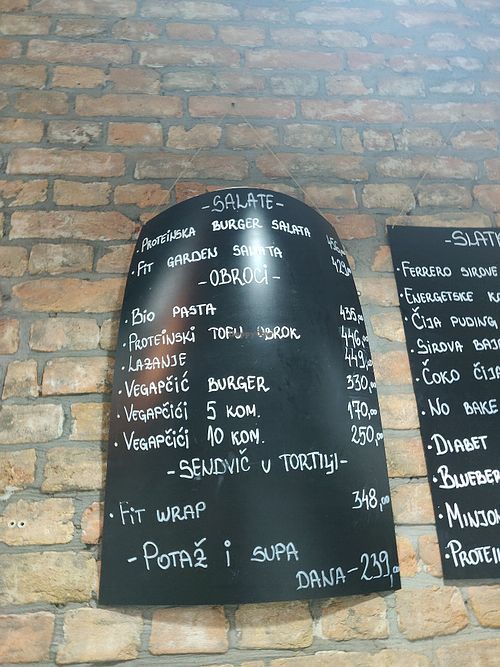 -SALATE-
• PROTEINSKA BURGER SALATA
• FIT GARDEN SALATA 429,00
-OBROCI-
• BIO PASTA 435,00
• PROTEINSKI TOFU OBROK 446,00
• LAZANJE 449,00
• VEGAPČIĆ BURGER 330,00
• VEGAPČIĆI 5 KOM. 170,00
• VEGAPČIĆI 10 KOM. 250,00
-SENDVIČ U TORTILJI-
• FIT WRAP 348,00
- POTAŽ I SUPA
DANA-239,00
-SLATK
• FERRERO SIROVE
• ENERGETSKE
• ČIJA PUDING
• SIROVA BAJA
• ČOKO ČIJA
• NO BAKE
• DIABET
• BLUEBER
• MINJON
• PROTEIN